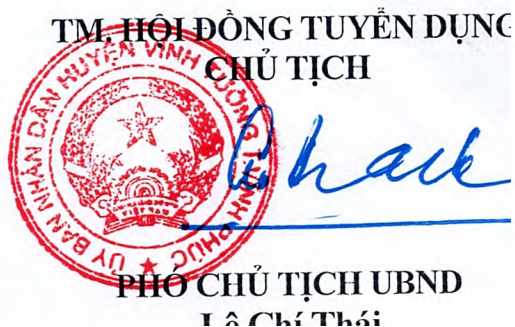 TM. HỘI ĐỒNG TUYỂN DỤNG
CHỦ TỊCH
ỦY BAN NHÂN DÂN HUYỆN VĨNH TƯỜNG TỈNH VĨNH PHÚC
VIỆT NAM
PHÓ CHỦ TỊCH UBND
Lê Chí Thái